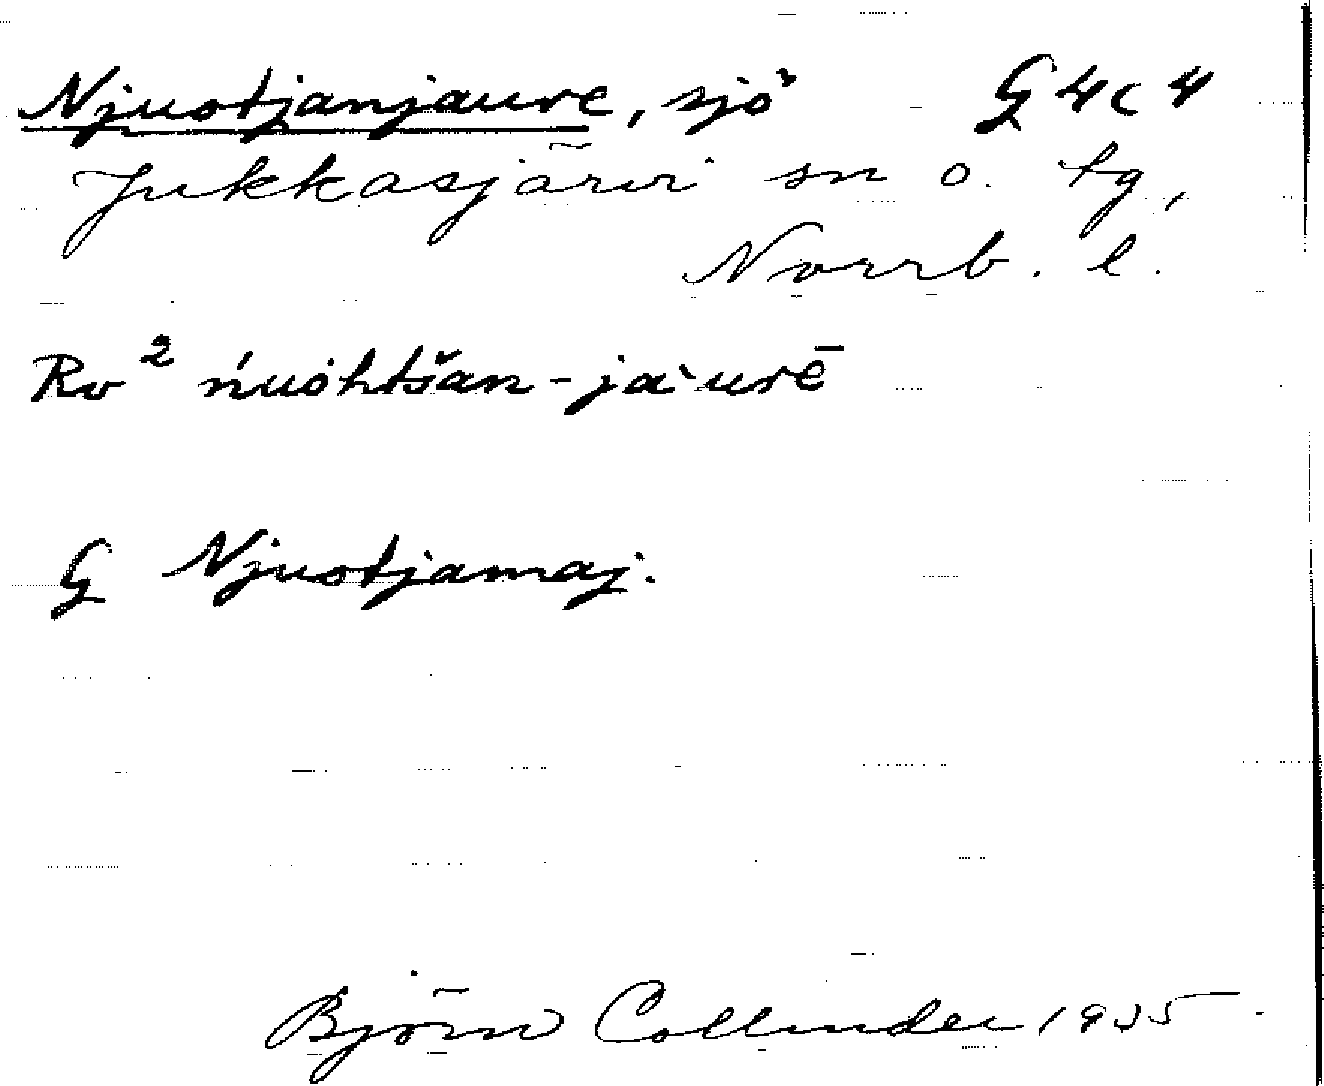 Njuotjanjaure, sjö G 4 c 4
Jukkasjärvi sn o. tg,
Norrb. l.
Rv² ńuòhtšan-jaˋurē
G Njuotjamaj.
Björn Collinder 1935